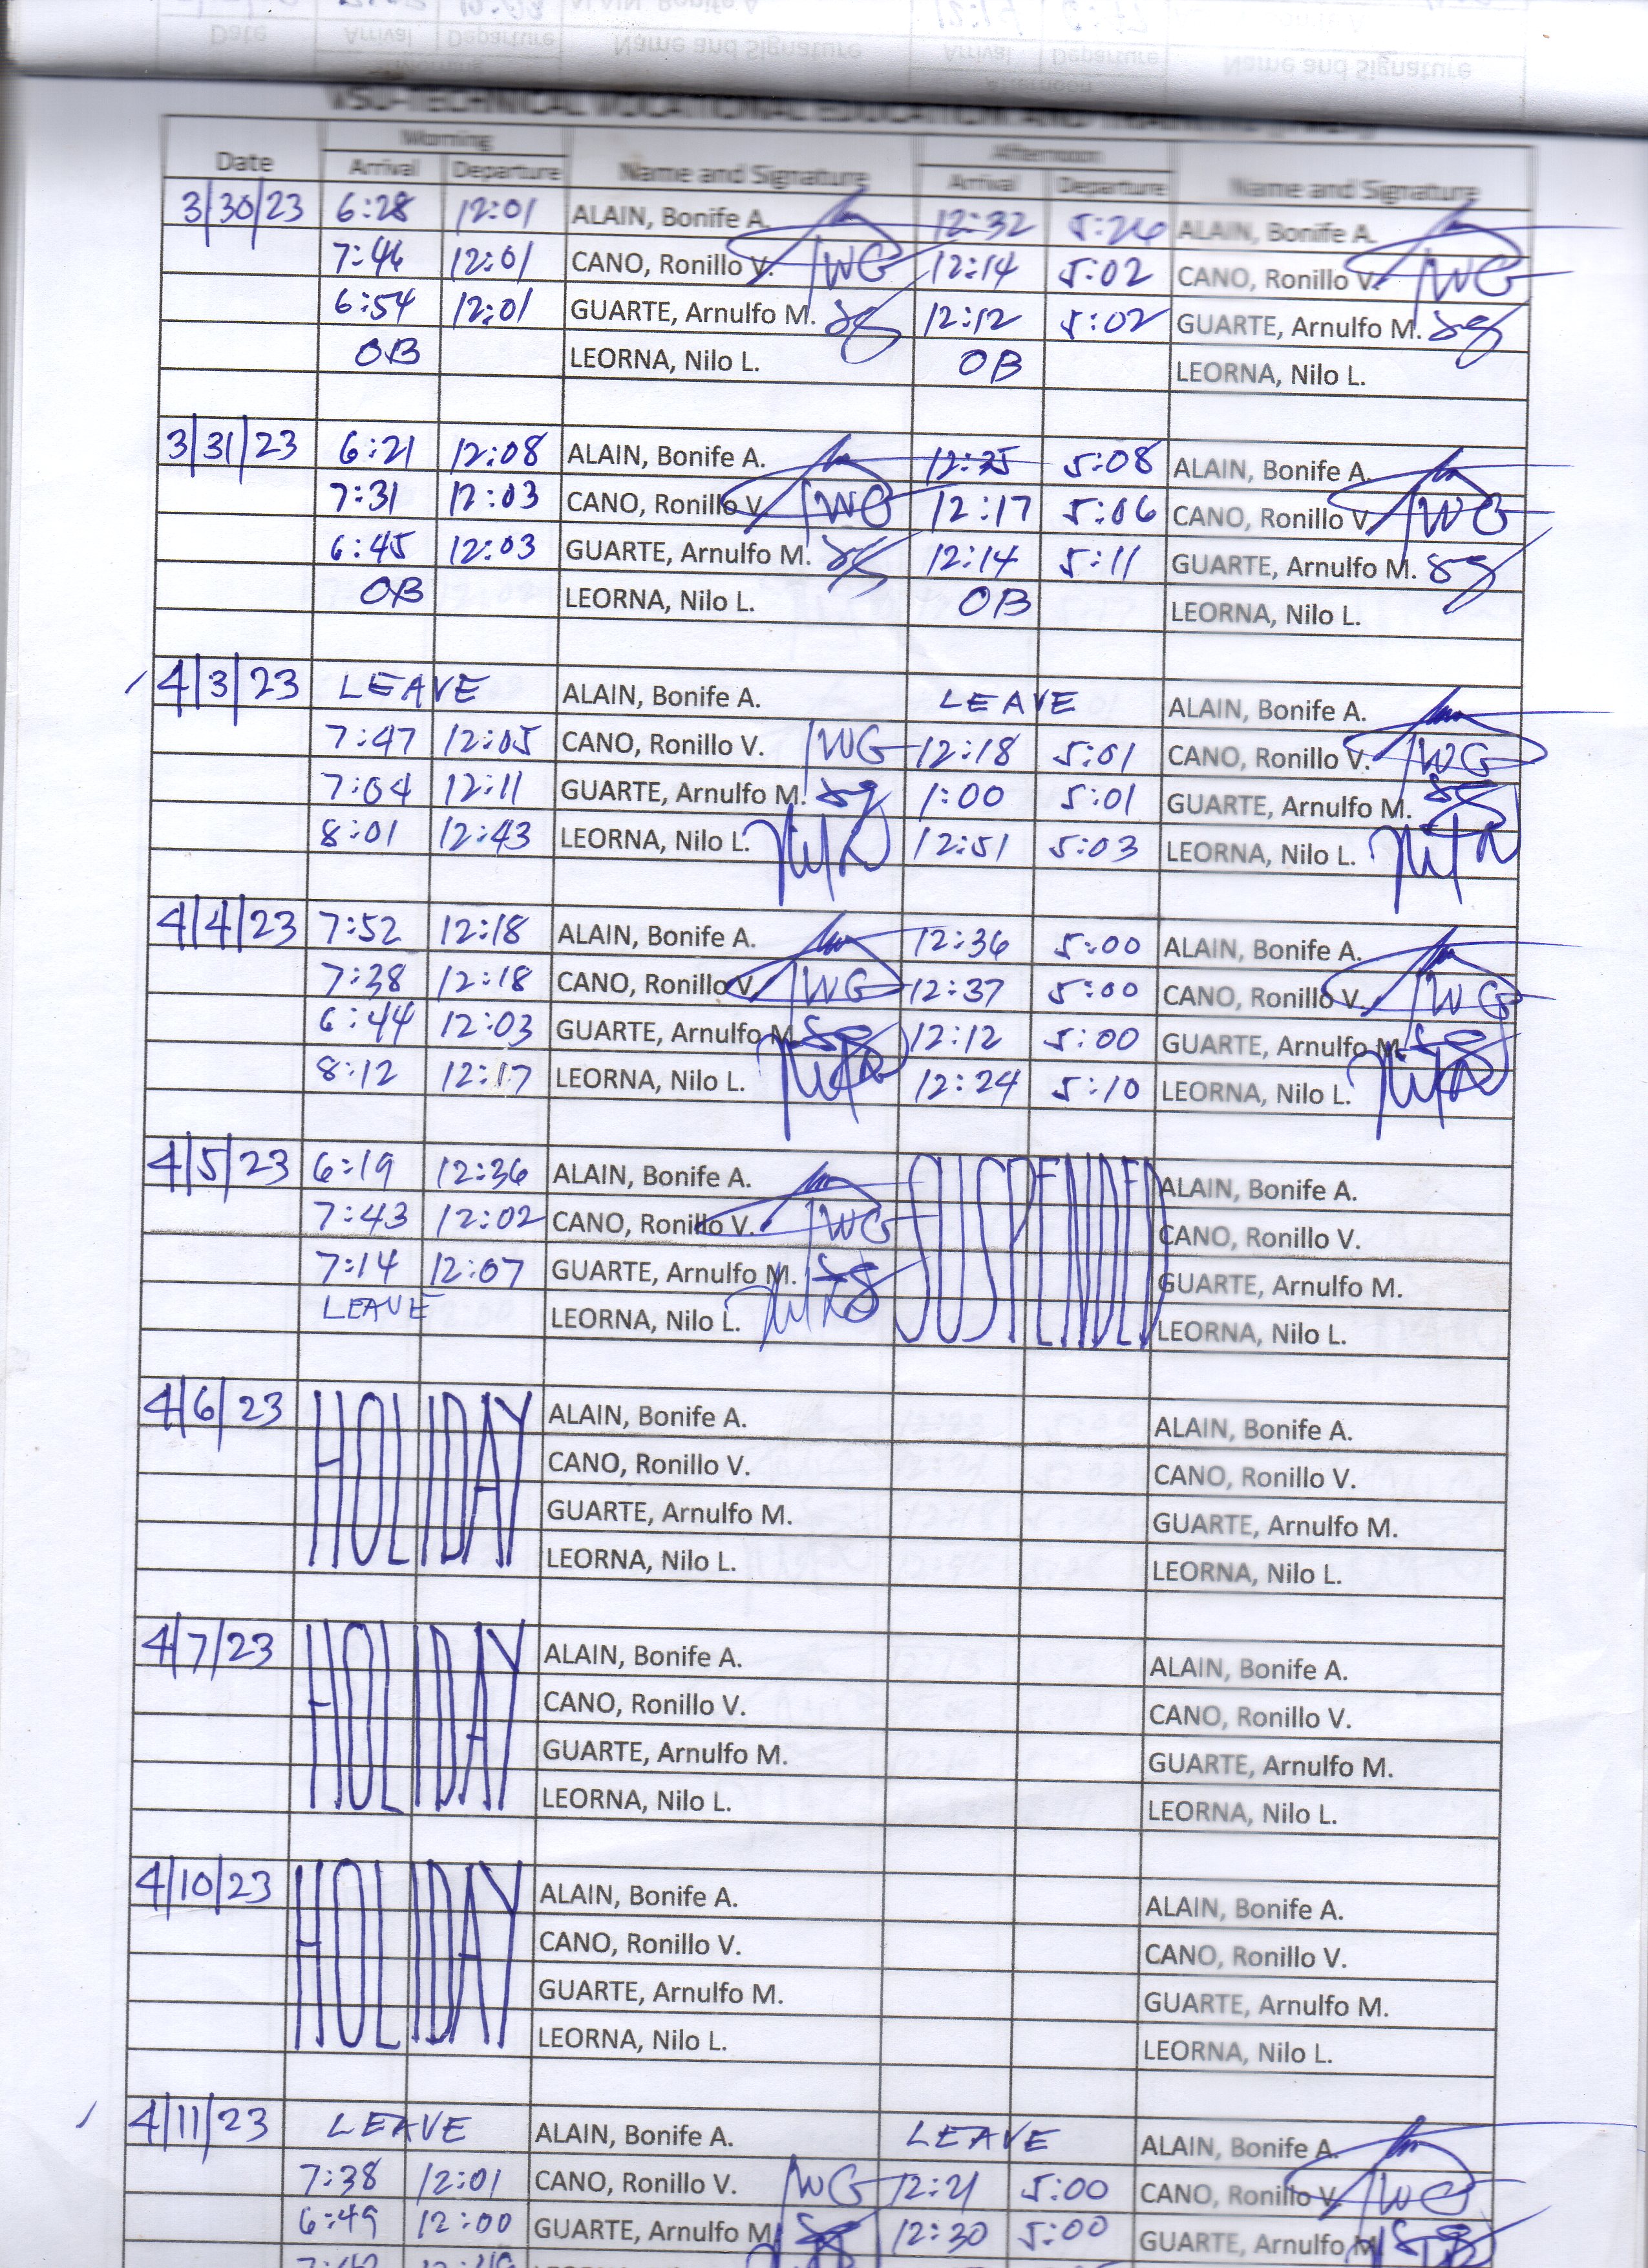 VSU-TECHNICAL VOCATIONAL EDUCATION AND TRAINING
Morning Afternoon
Date Arrival Departure Name and Signature Arrival Departure Name and Signature
3/30/23 6:28 12:01 ALAIN, Bonife A. 12:32 5:26 ALAIN, Bonife A.
7:46 12:01 CANO, Ronillo V. 12:14 5:02 CANO, Ronillo V.
6:54 12:01 GUARTE, Arnulfo M. 12:12 5:02 GUARTE, Arnulfo M.
OB LEORNA, Nilo L. OB LEORNA, Nilo L.
3/31/23 6:21 12:08 ALAIN, Bonife A. 12:25 5:08 ALAIN, Bonife A.
7:31 12:03 CANO, Ronillo V. 12:17 5:06 CANO, Ronillo V.
6:45 12:03 GUARTE, Arnulfo M. 12:14 5:11 GUARTE, Arnulfo M.
OB LEORNA, Nilo L. OB LEORNA, Nilo L.
4/3/23 LEAVE ALAIN, Bonife A. LEAVE ALAIN, Bonife A.
7:47 12:05 CANO, Ronillo V. 12:18 5:01 CANO, Ronillo V.
7:04 12:11 GUARTE, Arnulfo M. 1:00 5:01 GUARTE, Arnulfo M.
8:01 12:43 LEORNA, Nilo L. 12:51 5:03 LEORNA, Nilo L.
4/4/23 7:52 12:18 ALAIN, Bonife A. 12:36 5:00 ALAIN, Bonife A.
7:38 12:18 CANO, Ronillo V. 12:37 5:00 CANO, Ronillo V.
6:44 12:03 GUARTE, Arnulfo M. 12:12 5:00 GUARTE, Arnulfo M.
8:12 12:17 LEORNA, Nilo L. 12:24 5:10 LEORNA, Nilo L.
4/5/23 6:19 12:36 ALAIN, Bonife A. SUSPENDED ALAIN, Bonife A.
7:43 12:02 CANO, Ronillo V. CANO, Ronillo V.
7:14 12:07 GUARTE, Arnulfo M. GUARTE, Arnulfo M.
LEAVE LEORNA, Nilo L. LEORNA, Nilo L.
4/6/23 HOLIDAY ALAIN, Bonife A. ALAIN, Bonife A.
CANO, Ronillo V. CANO, Ronillo V.
GUARTE, Arnulfo M. GUARTE, Arnulfo M.
LEORNA, Nilo L. LEORNA, Nilo L.
4/7/23 HOLIDAY ALAIN, Bonife A. ALAIN, Bonife A.
CANO, Ronillo V. CANO, Ronillo V.
GUARTE, Arnulfo M. GUARTE, Arnulfo M.
LEORNA, Nilo L. LEORNA, Nilo L.
4/10/23 HOLIDAY ALAIN, Bonife A. ALAIN, Bonife A.
CANO, Ronillo V. CANO, Ronillo V.
GUARTE, Arnulfo M. GUARTE, Arnulfo M.
LEORNA, Nilo L. LEORNA, Nilo L.
4/11/23 LEAVE ALAIN, Bonife A. LEAVE ALAIN, Bonife A.
7:38 12:01 CANO, Ronillo V. 12:21 5:00 CANO, Ronillo V.
6:49 12:00 GUARTE, Arnulfo M. 12:30 5:00 GUARTE, Arnulfo M.